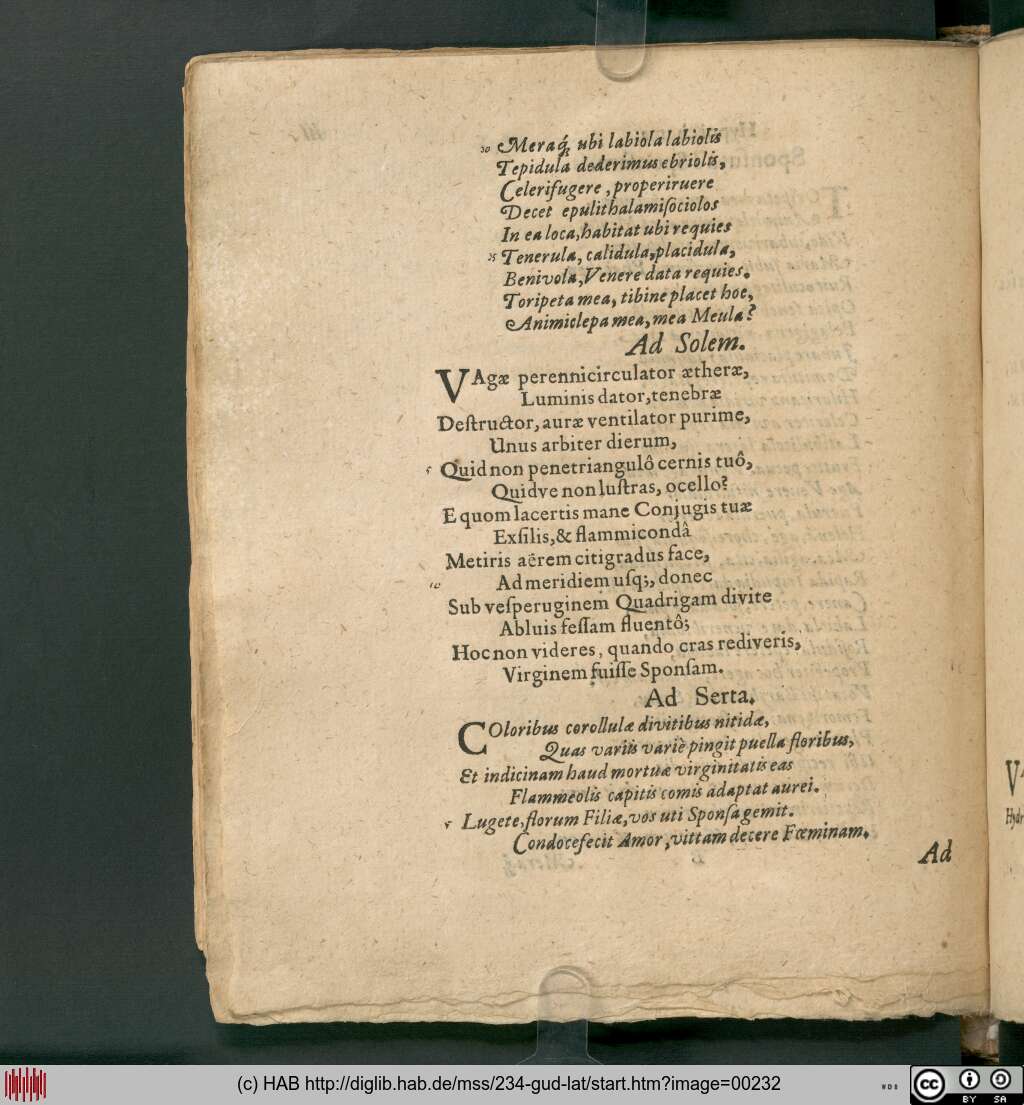 30 Meraq́; ubi labiola labiolis
Tepidula dederimus ebriolis,
Celerifugere, properiruere
Decet epulithalamisociolos
In ea loca, habitat ubi requies
35 Tenerula, calidula, placidula,
Benivola, Venere data requies.
Toripeta mea, tibine placet hoc,
Animiclepa mea, mea Meula?
Ad Solem.
VAgæ perennicirculator ætheræ,
Luminis dator, tenebræ
Destructor, auræ ventilator purime,
Unus arbiter dierum,
5 Quid non penetriangulô cernis tuô,
Quidve non lustras, ocello?
E quom lacertis mane Conjugis tuæ
Exsilis, & flammicondâ
Metiris aërem citigradus face,
10 Ad meridiem usq;, donec
Sub vesperuginem Quadrigam divite
Abluis fessam fluentô;
Hoc non videres, quando cras rediveris,
Virginem fuisse Sponsam.
Ad Serta.
COloribus corollulæ divitibus nitidæ,
Quas variis variè pingit puella floribus,
Et indicinam haud mortuæ virginitatis eas
Flammeolis capitis comis adaptat aurei.
5 Lugete, florum Filiæ, vos uti Sponsa gemit.
Condocefecit Amor, vittam decere Fœminam.
Ad
(c) HAB http://diglib.hab.de/mss/234-gud-lat/start.htm?image=00232
WDB
cc
BY SA